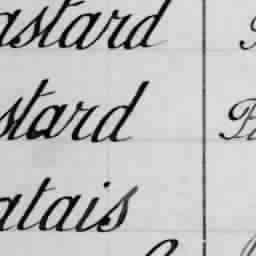 astard
stard
atais